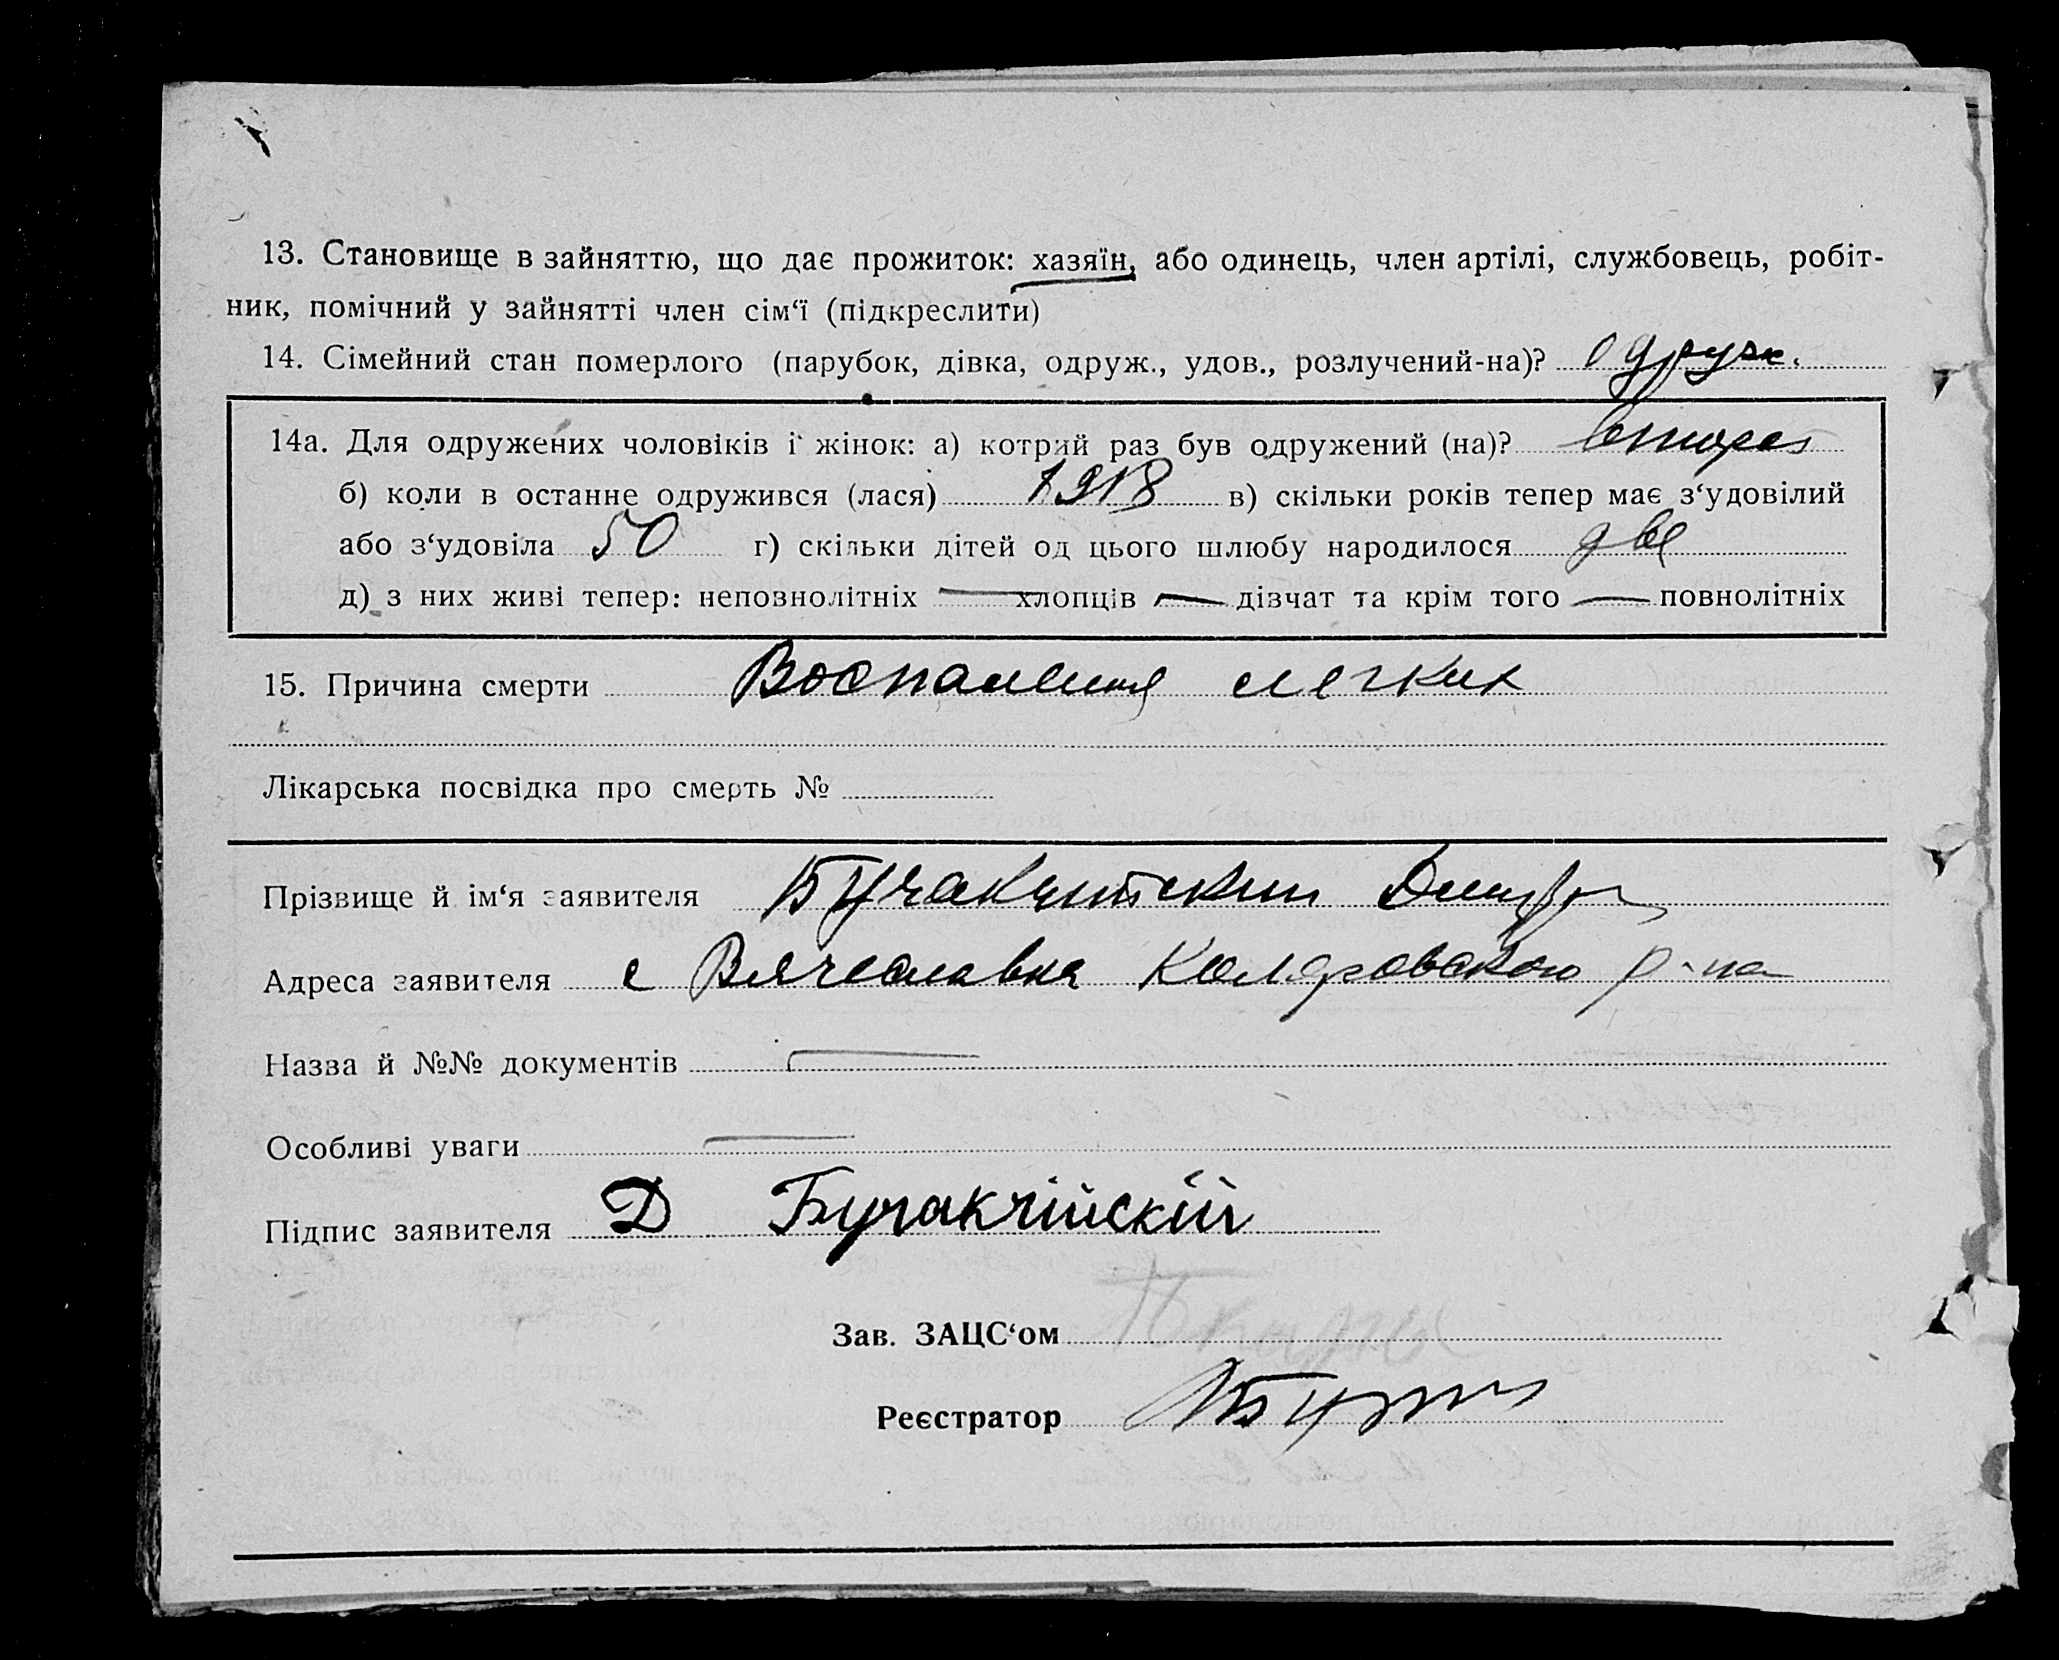 13. Становище в зайняттю, що дає прожиток: хазяїн, або одинець, член артілі, службовець, робіт-
ник, помічний у зайнятті член сім‘ї (підкреслити)
14. Сімейний стан померлого (парубок, дівка, одруж., удов., розлучений-на)? одруж.
14а. Для одружених чоловіків і жінок: а) котрий раз був одружений (на)? второй
б) коли в останне одружився (лася) 1918 в) скільки років тепер має з‘удовілий
або з‘удовіла 50 г) скільки дітей од цього шлюбу народилося две
д) з них живі тепер: неповнолітніх — хлопців — дівчат та крім того — повнолітніх
15. Причина смерти Воспаления легких
Лікарська посвідка про смерть №
Прізвище й ім'я заявителя Дмитр
Адреса заявителя с Вячеславка Коларовского р-на
Назва й №№ документів —
Особливі уваги —
Підпис заявителя Д Бучакчійскій
Зав. ЗАЦС‘ом
Реєстратор